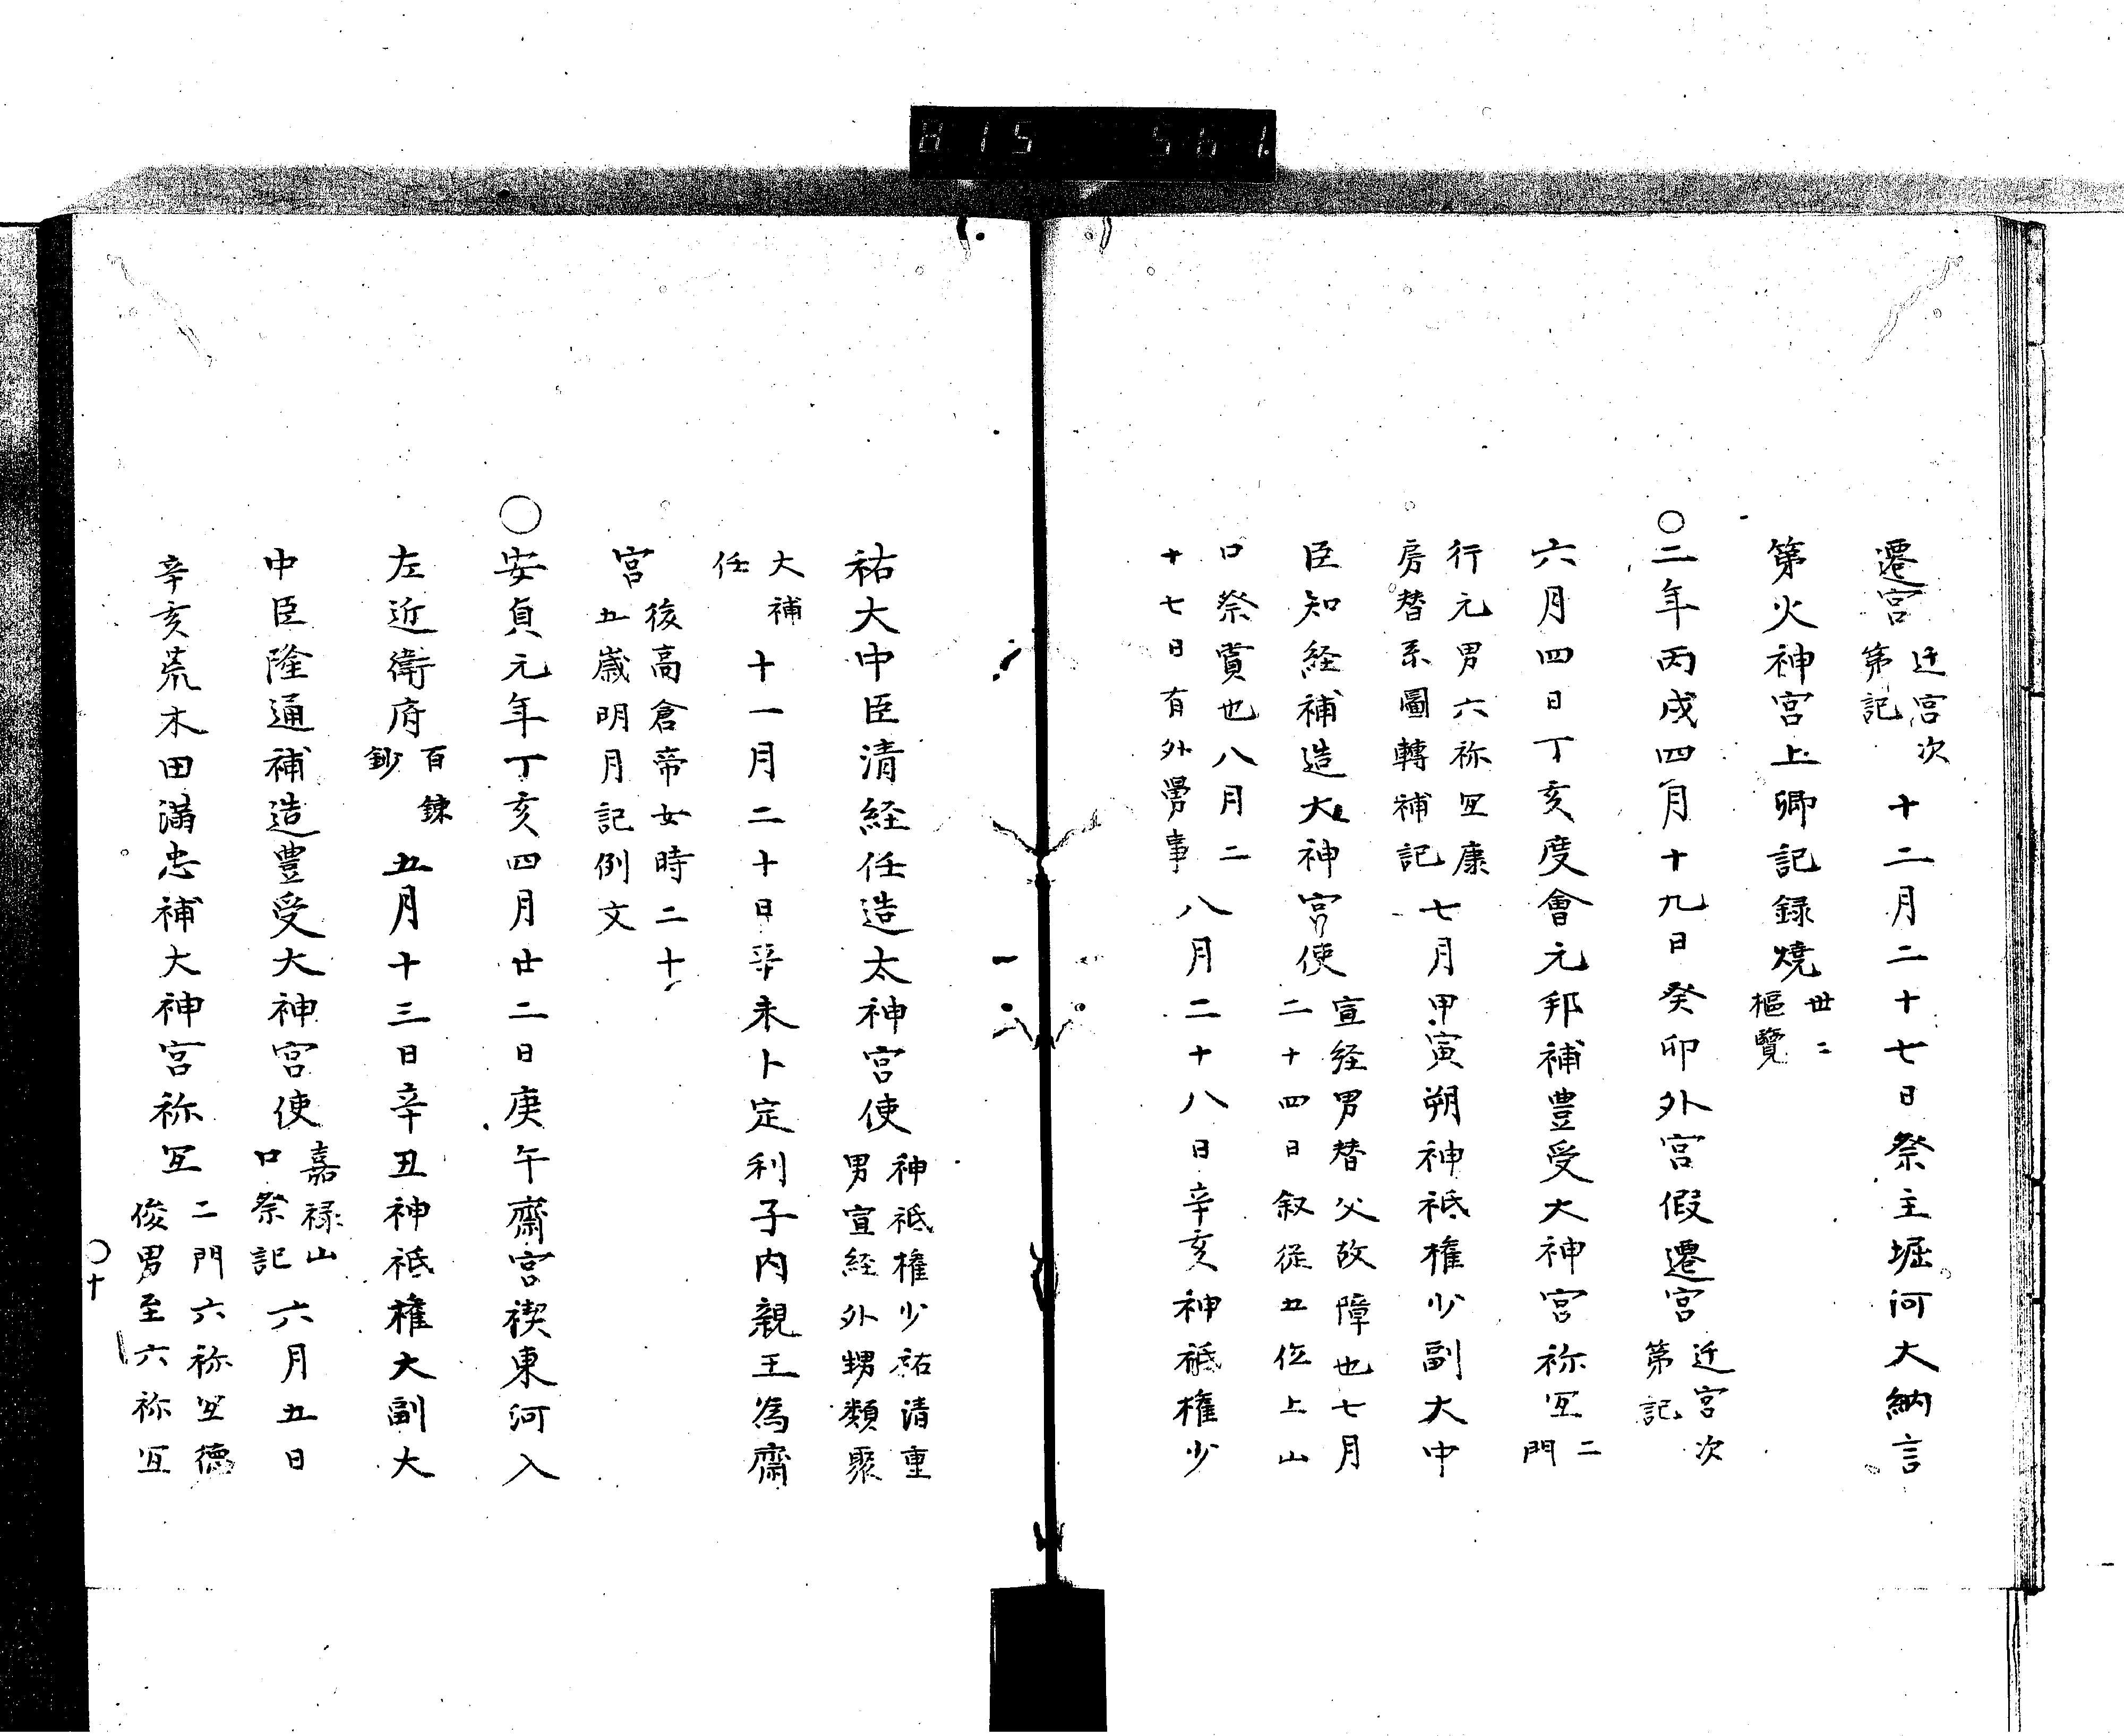 815 561.
遷宮 迁宮次第記 十二月二十七日祭主堀河大納言
第火神宮上卿記録焼 世ニ樞覽
〇二年丙戌四月十九日癸卯外宮假遷宮 迁宮次第記
六月四日丁亥度會元邦補豊受大神宮祢冝 二門
行元男六祢冝康房替系圖轉補記 七月甲寅朔神祗権少副大中
臣知経補造大神宮使 宣経男替父故障也七月二十四日叙従五位上山
口祭賞也八月二十七日有外㽵事 八月二十八日辛亥神祗権少
祐大中臣清経任造太神宮使 神祗権少祐清重男宣経外甥類聚
大補任 十一月二十日辛未卜定利子内親王為齋
宮 後高倉帝女時二十五歳明月記例文
〇安貞元年丁亥四月廿二日庚午齋宮禊東河入
左近衛府 百錬鈔 五月十三日辛丑神祗権大副大
中臣隆通補造豊受大神宮使 嘉禄山口祭記 六月五日
辛亥荒木田満忠補大神宮祢冝 二門六祢冝德俊男至六祢冝
〇十